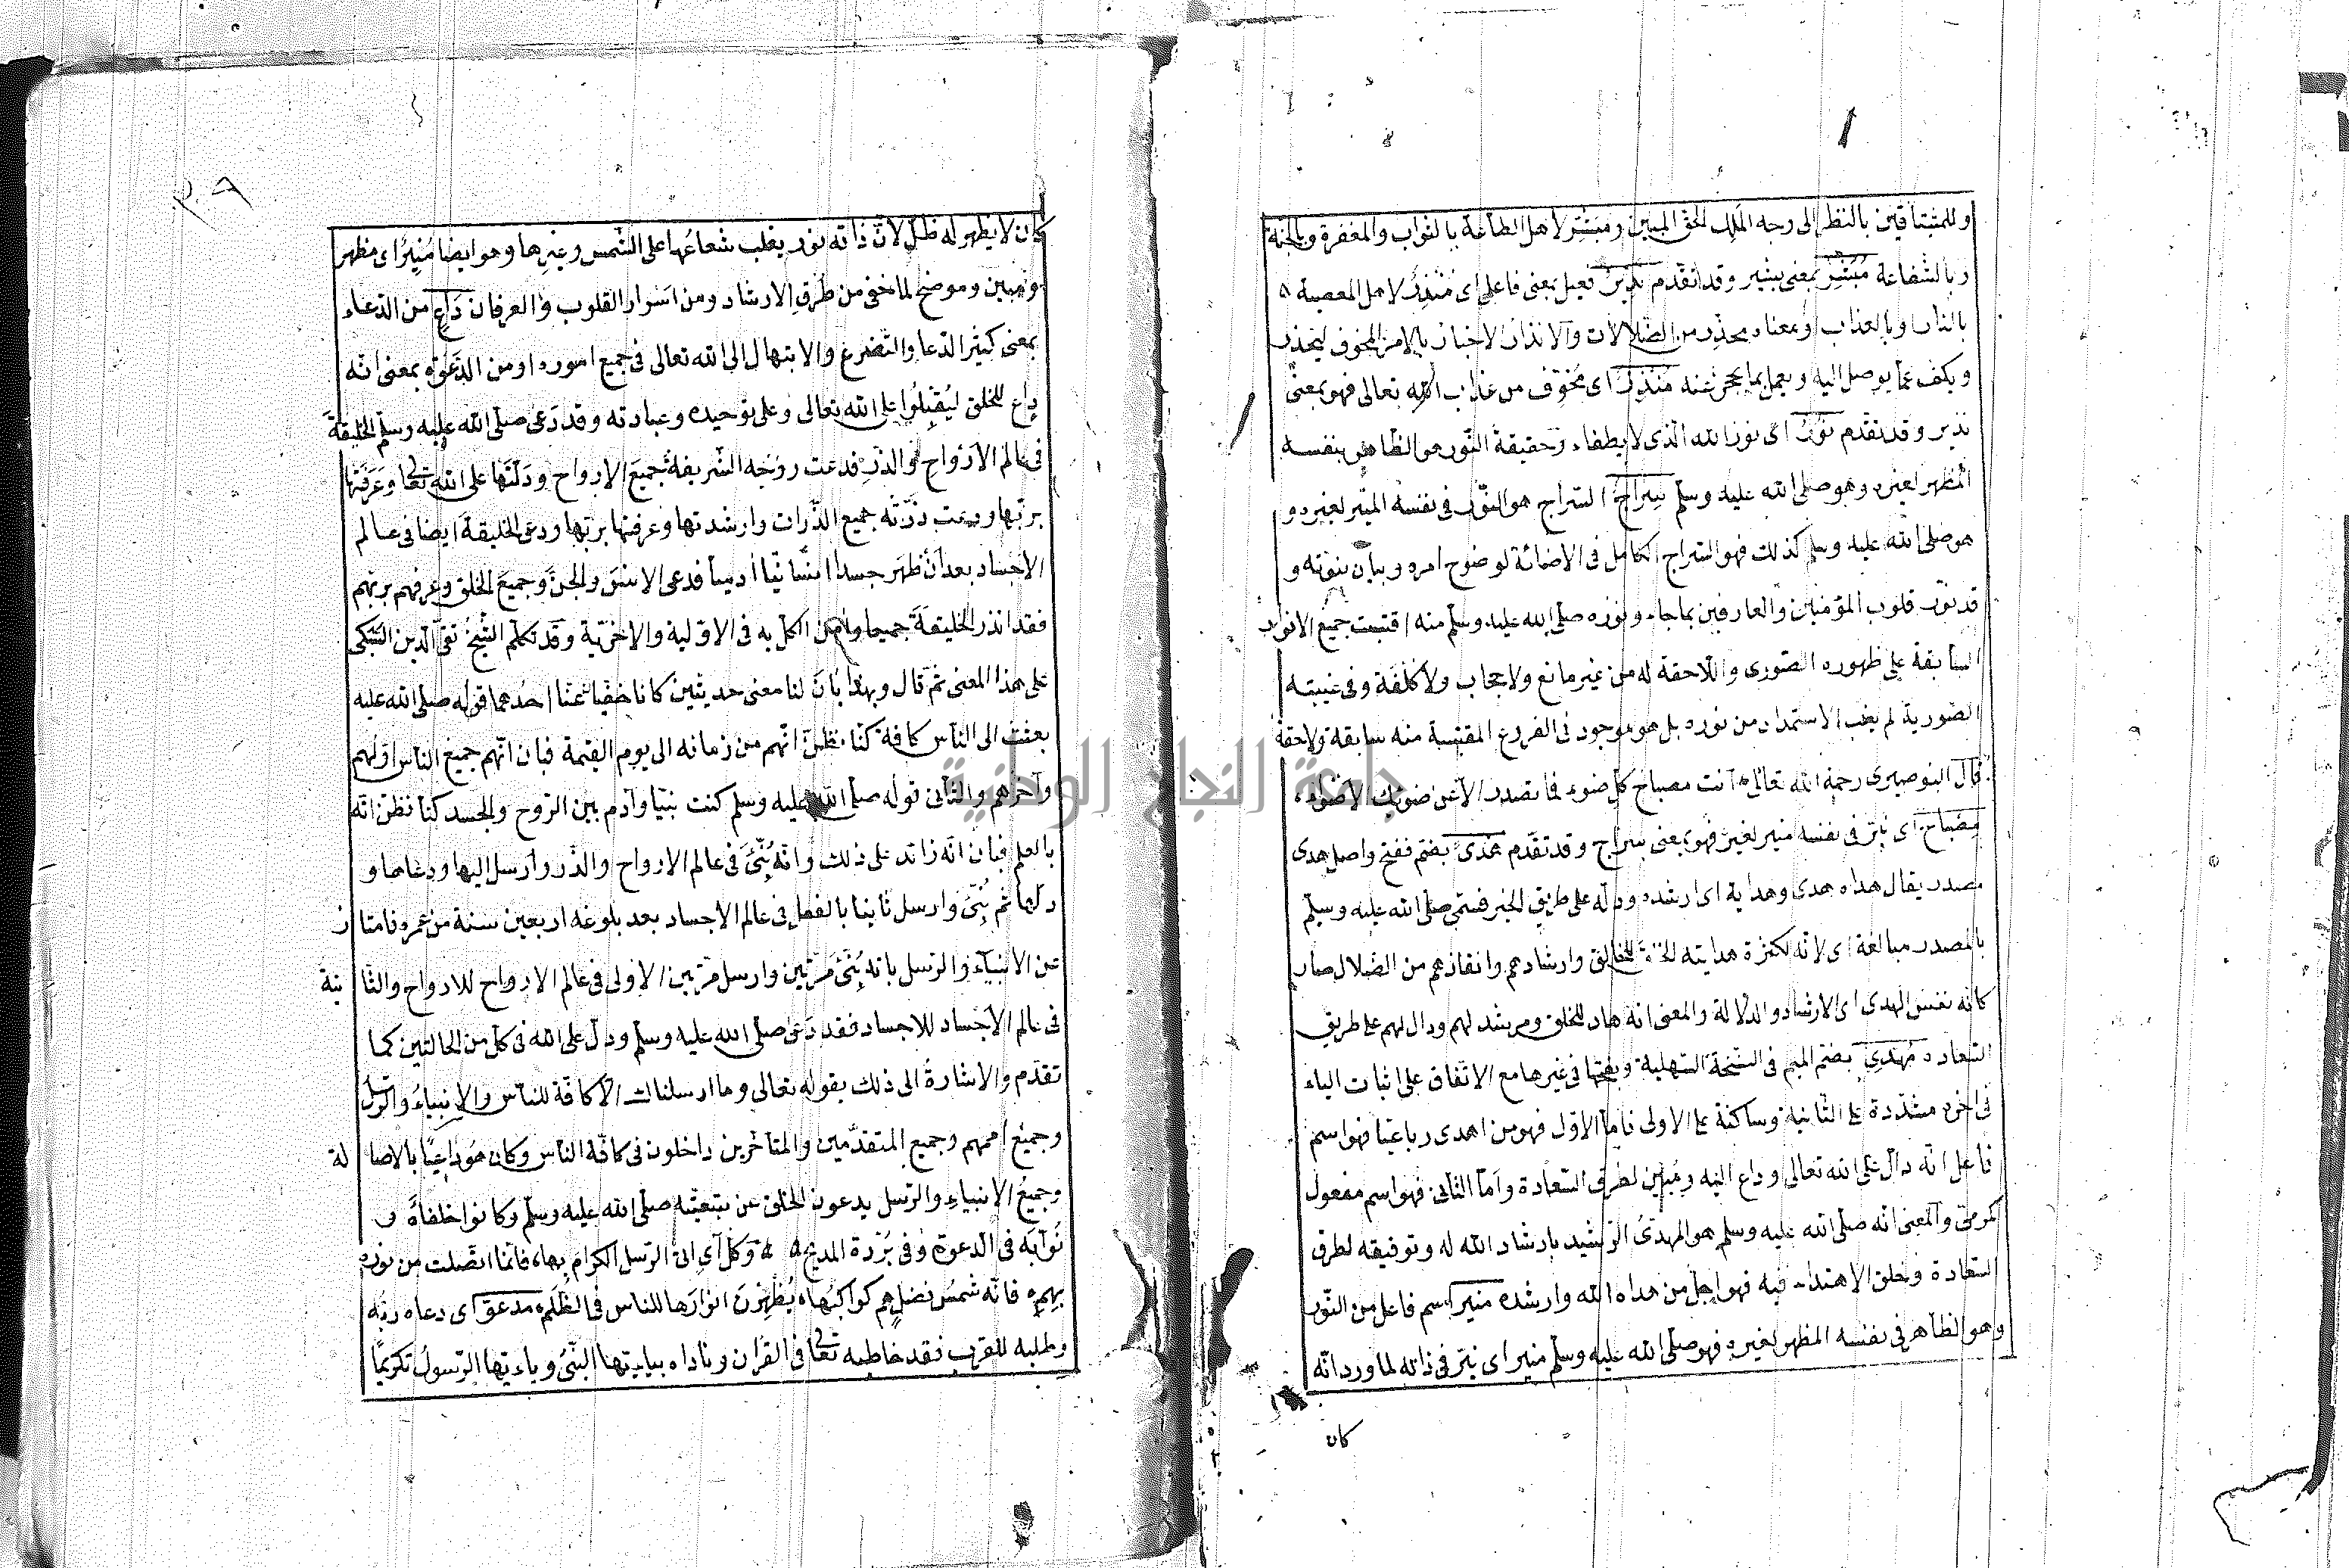 وللمشتاقين بالنظر الى وجه الملك الحق المبين ومبشر لاهل الطاعة بالثواب والمغفرة وبالجنة
وبالشفاعة مُبَشِّرٌ بمعنى بشير وقد تقدم نذيرٌ فعيل بمعنى فاعل اى مُنْذِرٌ لاهل المعصية
بالنار وبالعذاب او معناه محذر من الضلالات والانذار الاخبار بالامر المخوف ليحذر
ويكف عما يوصل اليه ويعمل بما يحجز عنه مُنْذِرٌ اى مُخَوِّف من عذاب الله تعالى فهو بمعنى
نذير وقد تقدم نُورٌ اى نور الله الذى لا يطفاء وحقيقة النور هو الظاهر بنفسه
المُظهر لغيره وهو صلى الله عليه وسلم سِرَاجٌ السراج هو النور فى نفسه المنير لغيره و
هو صلى الله عليه وسلم كذلك فهو السراج الكامل فى الاضائة لوضوح امره وبيان نبوته و
قد نوّر قلوب المؤمنين والعارفين بما جاء ونوره صلى الله عليه وسلم منه اقتبست جميع الانوار
السابقة على ظهوره الصورى واللاحقة له من غير مانع ولا حجاب ولا كلفة وفى غيبته
الصورية لم يغب الاستمداد من نوره بل هو موجود فى الفروع المقتبسة منه سابقة ولاحقة
قال البوصيرى رحمه الله تعالى انت مصباح كل ضوء فما تصدر الا عن ضوئك الاضواء
مصباحٌ اى نير فى نفسه منير لغيره فهو بمعنى سراج وقد تقدم هُدَىً بضم ففتح واصل هدى
مصدر يقال هداه هدى وهداية اى ارشده ودله على طريق الخير فسمى صلى الله عليه وسلم
بالمصدر مبالغة اى لانه لكثرة هدايته للخالق وارشادهم وانقاذهم من الضلال صار
كانه نفس الهدى اى الارشاد والدلالة والمعنى انه هاد للخلق ومرشد لهم ودال لهم على طريق
السعادة مُهْتَدِي بضم الميم فى النسخة السهلية وبفتحها فى غيرها مع الاتفاق على اثبات الياء
فى اخره مشددة على الثانية وساكنة على الاولى فاما الاول فهو من اهدى رباعيا فهو اسم
فاعل انه دالّ على الله تعالى وداع اليه ومُبيّن لطرق السعادة واما الثانى فهو اسم مفعول
كمرمىّ والمعنى انه صلى الله عليه وسلم هو المهدىّ الرشيد بارشاد الله له وتوفيقه لطرق
السعادة وبخلق الاهتداء فيه فهو اجل من هداه الله وارشده منير اسم فاعل من النور
وهو الظاهر فى نفسه المظهر لغيره فهو صلى الله عليه وسلم منير اى نير فى ذاته لما ورد انّه
كان
٣٠٩
كان لا يظهر له ظل لانّ ذاته نور يغلب شعاعها على الشمس وغيرها وهو ايضا مُنِيرٌ اى مظهر
ومبين وموضح لما خفى من طرق الارشاد ومن اسرار القلوب والعرفان دَاعٍ من الدعاء
بمعنى كثير الدعا والتضرع والابتهال الى الله تعالى فى جميع اموره او من الدعوة بمعنى انّه
داع للخلق ليُقبِلُوا على الله تعالى وعلى توحيده وعبادته وقد دَعى صلى الله عليه وسلم الخليقة
فى عالم الارواح والذر فدعت روحه الشريفة جميع الارواح ودلّتها على الله تعا وعَرَفَتها
بربها ودعت ذرّته جميع الذّرات وارشدتها وعرفتها بربها ودعى الخليقة ايضا فى عالم
الاجساد بعد ان ظهر جسدا انسانيّا ادميا فدعى الانس والجن وجميع الخلق وعرفهم بربهم
فقد انذر الخليقة جميعا وامن الكل به فى الاوّلية والاخريّة وقد تكلّم الشيخ تقى الدين السبكى
على هذا المعنى ثم قال وبهذا بان لنا معنى حديثين كانا خفيا عنّا احدهما قوله صلى الله عليه
بعثت الى الناس كافة كنا نظن انهم من زمانه الى يوم القيمة فبان انّهم جميع الناس اوّلهم
وآخرهم والثانى قوله صلى الله عليه وسلم كنت نبيّا وآدم بين الروح والجسد كنا نظن انّه
بالعلم فبان انّه زائد على ذلك وانّه نُبِّئَ فى عالم الارواح والذّر وارسل اليها ودعاها و
دلّها ثم نُبِّئَ وارسل ثانيا بالفعل فى عالم الاجساد بعد بلوغه اربعين سنة من عمره فامتاز
عن الانبياء والرسل بانه نُبِّئَ مرّتين وارسل مرّتين الاولى فى عالم الارواح للارواح والثانية
فى عالم الاجساد للاجساد فقد دَعَى صلى الله عليه وسلم ودلّ على الله فى كل من الحالتين كما
تقدّم والاشارة الى ذلك بقوله تعالى وما ارسلناك الا كافة للناس والانبياء والرسل
وجميع اممهم وجميع المتقدّمين والمتأخرين داخلون فى كافة الناس وكان هو داعيًا بالاصالة
وجميع الانبياء والرسل يدعون الخلق عن تبعيّته صلى الله عليه وسلم وكانوا خلفاءه و
نُوّابه فى الدعوة وفى بُرْدة المديح وكل آى اتى الرسل الكرام بها فانّما اتصلت من نوره
بهم فانّه شمسُ فضلٍ هم كواكبُها يُظهِرْنَ انوارَها للناس فى الظلم مدعوّ اى دعاه ربّه
وطلبه للقرب فقد خاطبه تعا فى القران وناداه بياءيّها النبىُّ وياءيّها الرسولُ تكريمًا